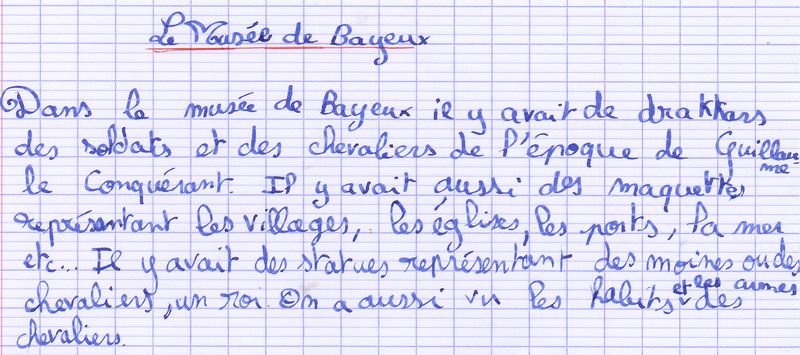 Le Musée de Bayeux
Dans le musée de Bayeux il y avait de drakkars
des soldats et des chevaliers de l'époque de Guillaume
le Conquérant. Il y avait aussi des maquettes
représentant les villages, les églises, les ponts, la mer
etc... Il y avait des statues représentant des moines ou des
chevaliers, un roi. On a aussi vu les habits et les armes des
chevaliers.